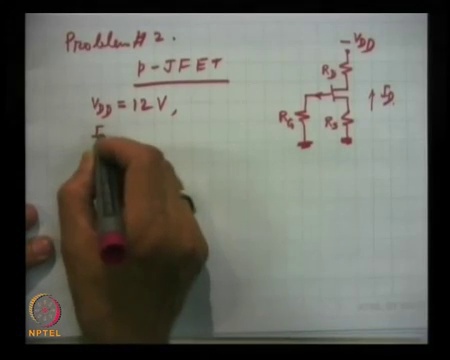 Problem # 2.
p-JFET
V_DD = 12 V,
I
-V_DD
R_D
R_G
R_S
↑ I_D.
NPTEL